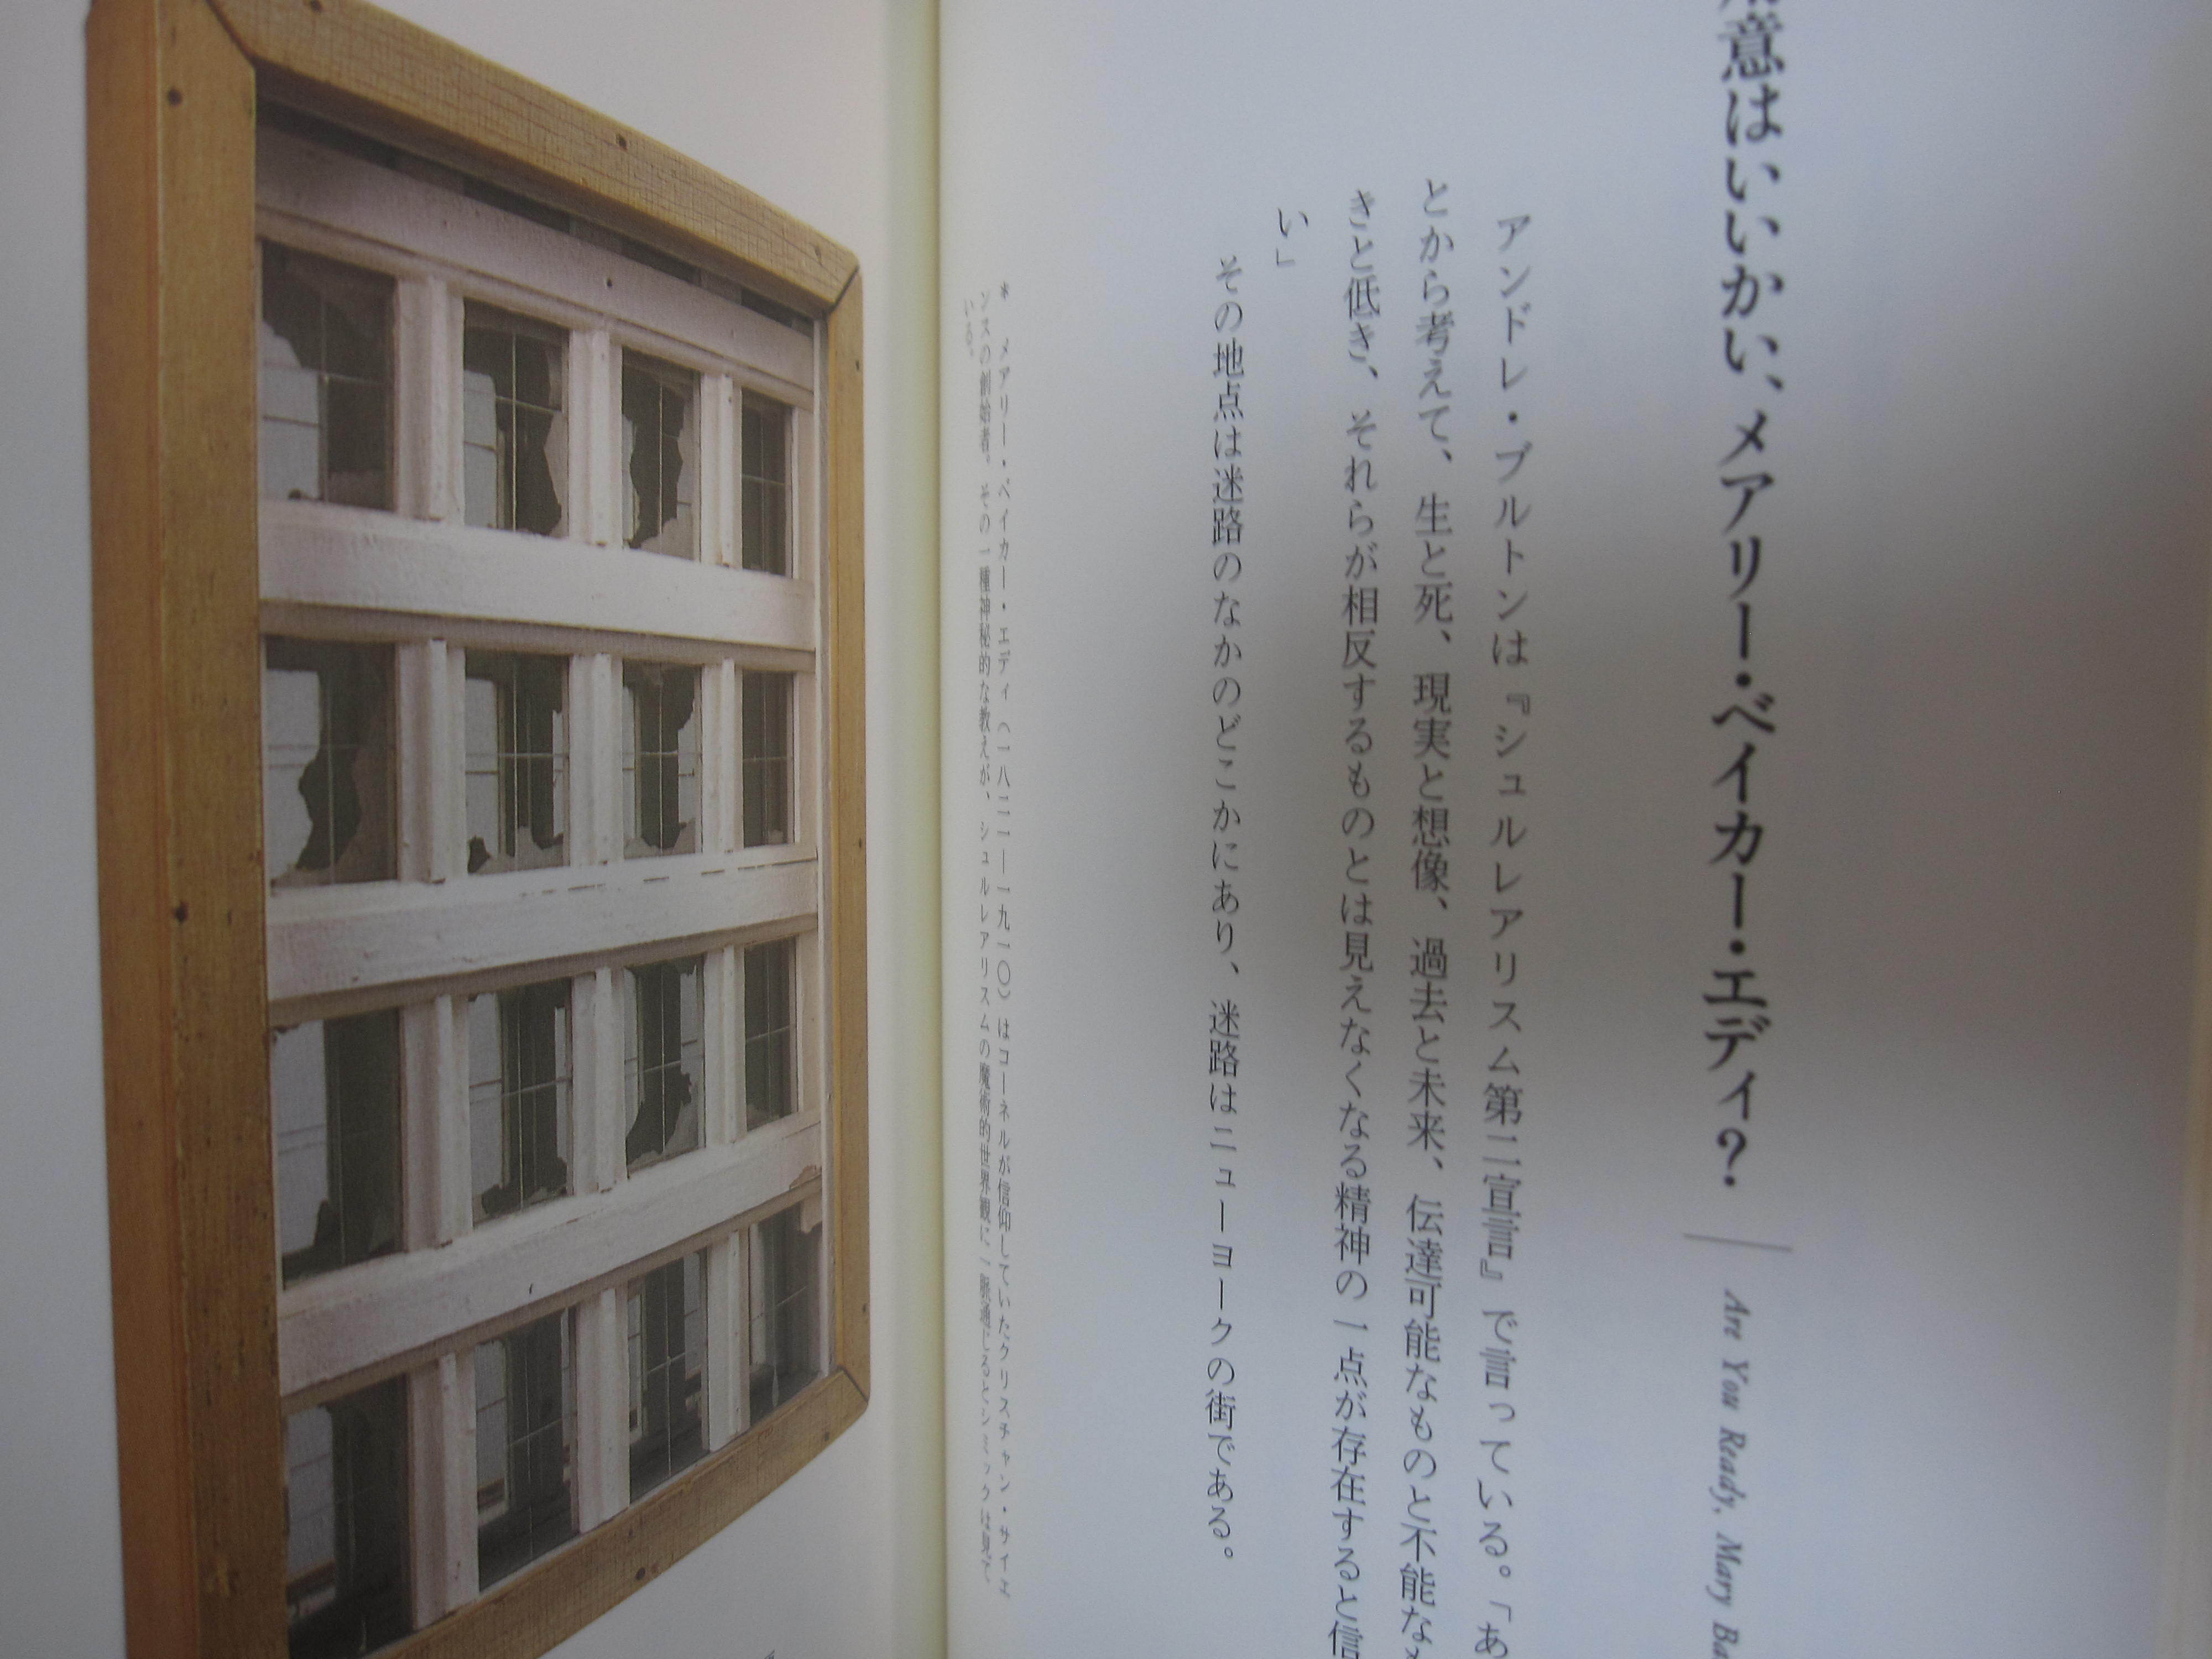 意はいいかい、メアリー・ベイカー・エディ?
Are You Ready, Mary Ba
アンドレ・ブルトンは『シュルレアリスム第二宣言』で言っている。「あ
とから考えて、生と死、現実と想像、過去と未来、伝達可能なものと不能な
きと低き、それらが相反するものとは見えなくなる精神の一点が存在すると信
い」
その地点は迷路のなかのどこかにあり、迷路はニューヨークの街である。
* メアリー・ベイカー・エディ(一八二一―一九一〇)はコーネルが信仰していたクリスチャン・サイエ
ンスの創始者。その一種神秘的な教えが、シュルレアリスムの魔術的世界観に一脈通じるとシミックは見て
いる。